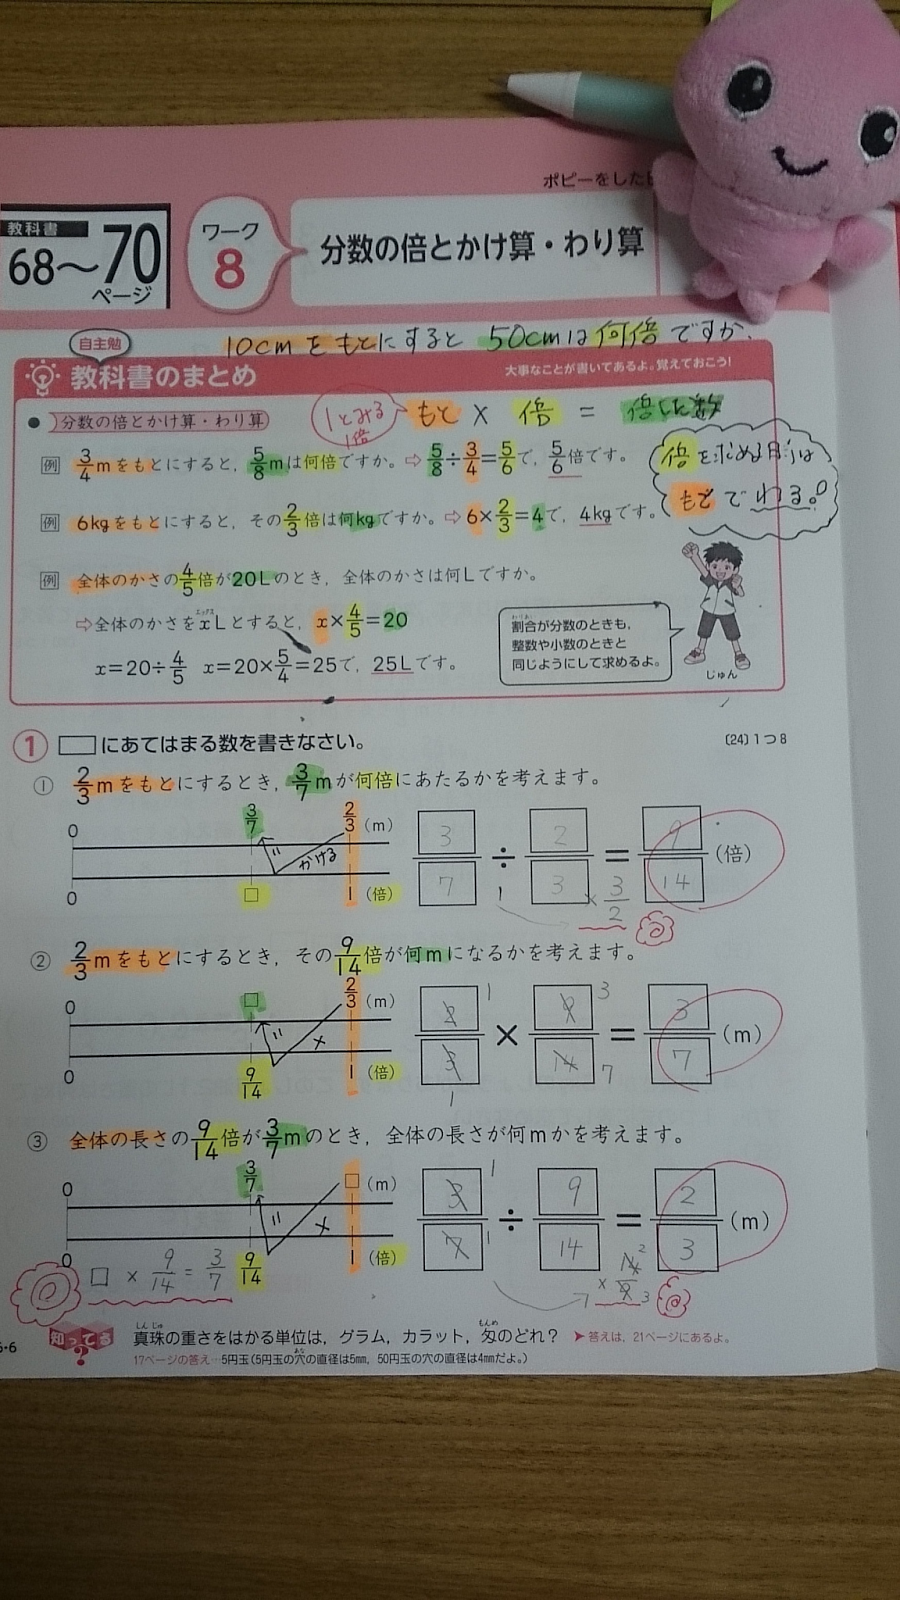 ポピーをした
教科書
68〜70
ページ
ワーク
8
分数の倍とかけ算・わり算
10cmをもとにすると 50cmは何倍ですか.
自主勉
教科書のまとめ
大事なことが書いてあるよ。覚えておこう!
分数の倍とかけ算・わり算
1とみる
1倍
もと × 倍 = 倍した数
例 3/4mをもとにすると,5/8mは何倍ですか。⇨5/8÷3/4=5/6で,5/6倍です。
倍を求める時は
もとでわる。
例 6kgをもとにすると,その2/3倍は何kgですか。⇨6×2/3=4で,4kgです。
例 全体のかさの4/5倍が20Lのとき,全体のかさは何Lですか。
エックス
⇨全体のかさをxLとすると,x×4/5=20
x=20÷4/5 x=20×5/4=25で,25Lです。
わりあい
割合が分数のときも,
整数や小数のときと
同じようにして求めるよ。
じゅん
1 □にあてはまる数を書きなさい。
〔24〕1つ8
① 2/3mをもとにするとき,3/7mが何倍にあたるかを考えます。
0 3/7 2/3 (m)
= かける
0 □ 1 (倍)
3/7 ÷ 2/3 = 9/14 (倍)
1 × 3/2
② 2/3mをもとにするとき,その9/14倍が何mになるかを考えます。
0 □ 2/3 (m)
= ×
0 9/14 1 (倍)
2/3 × 9/14 = 3/7 (m)
1 3
1 7
③ 全体の長さの9/14倍が3/7mのとき,全体の長さが何mかを考えます。
0 3/7 □ (m)
= ×
0 9/14 1 (倍)
3/7 ÷ 9/14 = 2/3 (m)
1
1
□ × 9/14 = 3/7
× 14/9
2
3
知ってる?
しんじゅ もんめ
真珠の重さをはかる単位は,グラム,カラット,匁のどれ? ➤答えは,21ページにあるよ。
あな
17ページの答え…5円玉(5円玉の穴の直径は5mm,50円玉の穴の直径は4mmだよ。)